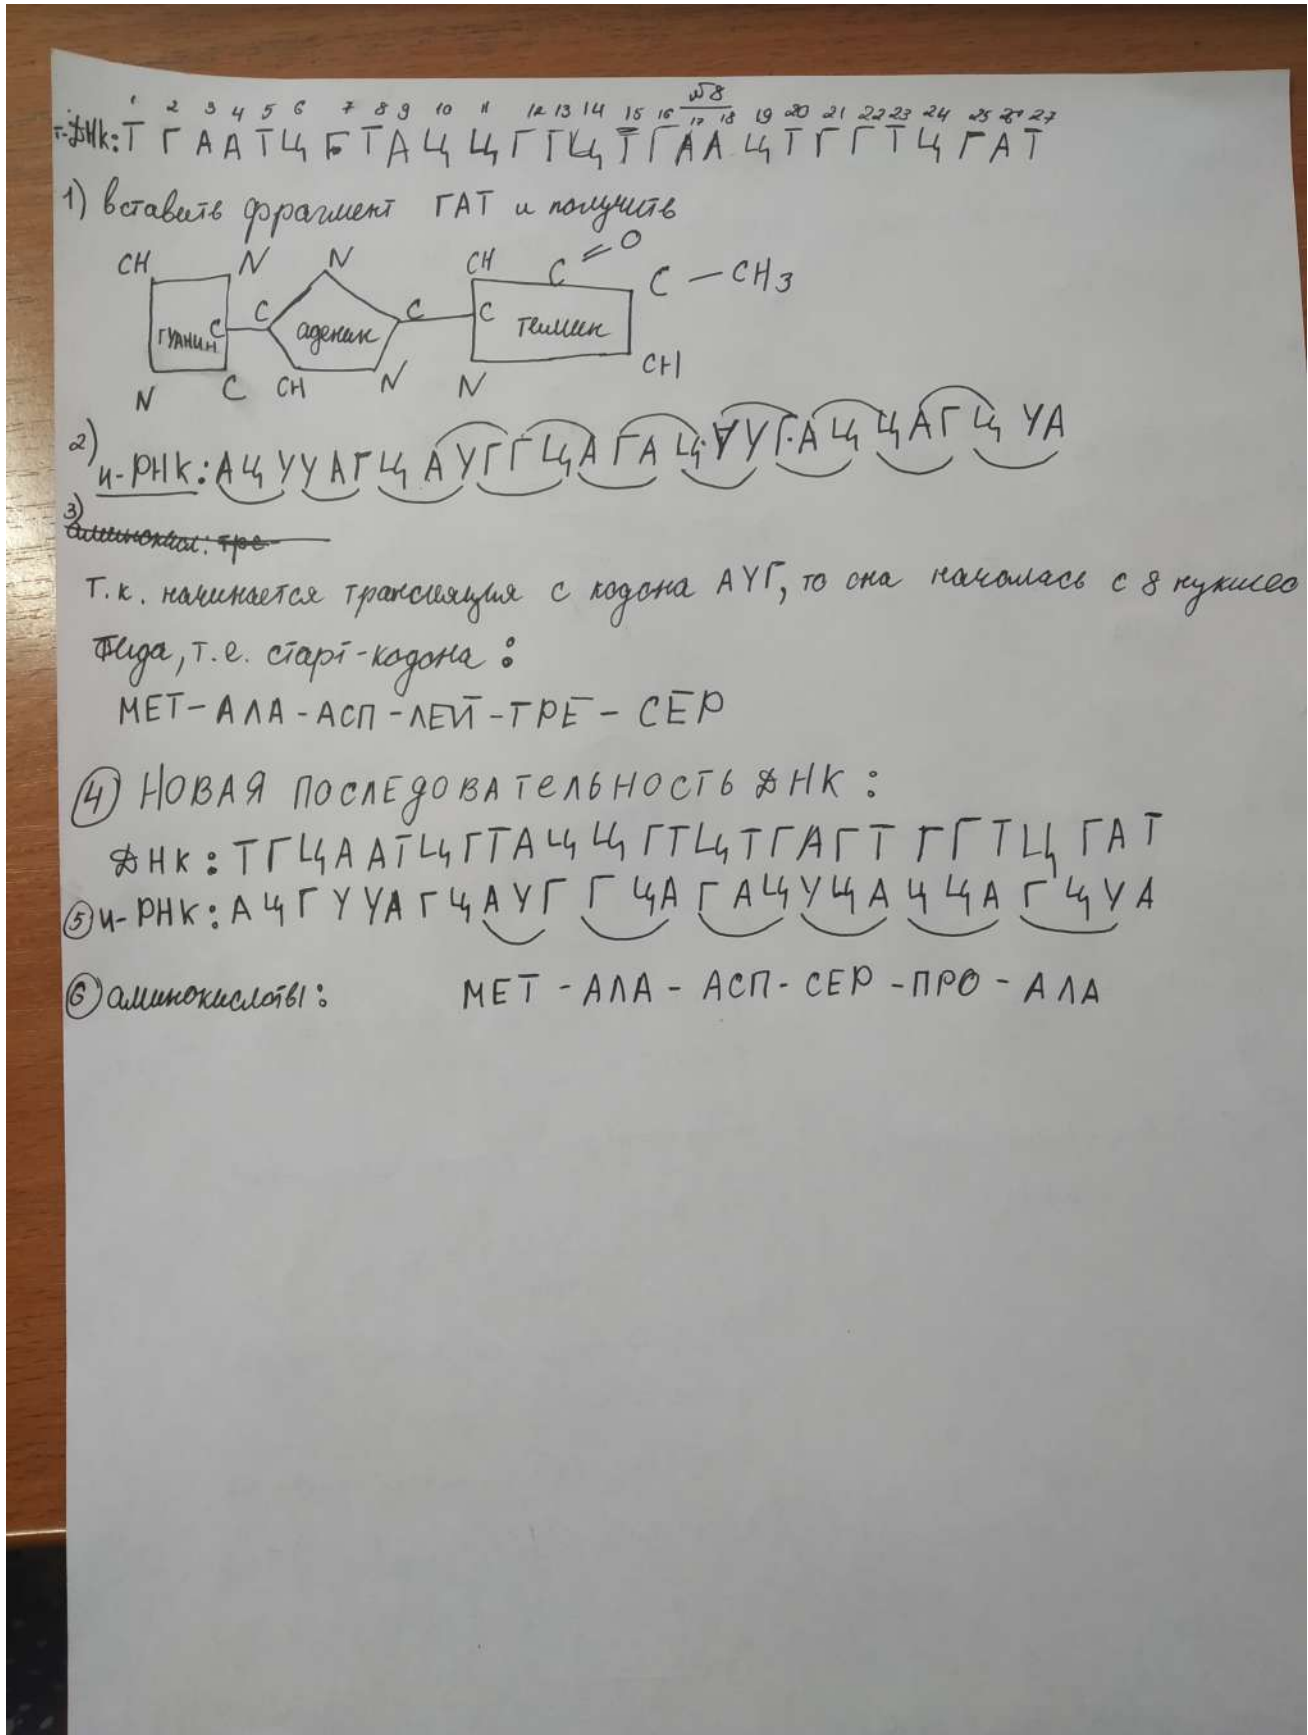 №8
1 2 3 4 5 6 7 8 9 10 11 12 13 14 15 16 17 18 19 20 21 22 23 24 25 26 27
т-ДНК: Т Г А А Т Ц Г Т А Ц Ц Г Т Ц Т Г А А Ц Т Г Г Т Ц Г А Т
1) вставить фрагмент ГАТ и получить
CH N N CH C = O C – CH3
гуанин C C аденин C C тимин
N C CH N N CH
2) и-РНК: А Ц У У А Г Ц А У Г Г Ц А Г А Ц У У Г А Ц Ц А Г Ц У А
3) аминокисл: тре-
Т.к. начинается трансляция с кодона АУГ, то она началась с 8 нуклео
тида, т.е. старт-кодона :
МЕТ – АЛА - АСП - ЛЕЙ - ТРЕ – СЕР
4) НОВАЯ ПОСЛЕДОВАТЕЛЬНОСТЬ ДНК :
ДНК : Т Г Ц А А Т Ц Г Т А Ц Ц Г Т Ц Т Г А Г Т Г Г Т Ц Г А Т
5) и-РНК: А Ц Г У У А Г Ц А У Г Г Ц А Г А Ц У Ц А Ц Ц А Г Ц У А
6) аминокислоты: МЕТ - АЛА - АСП - СЕР - ПРО - АЛА